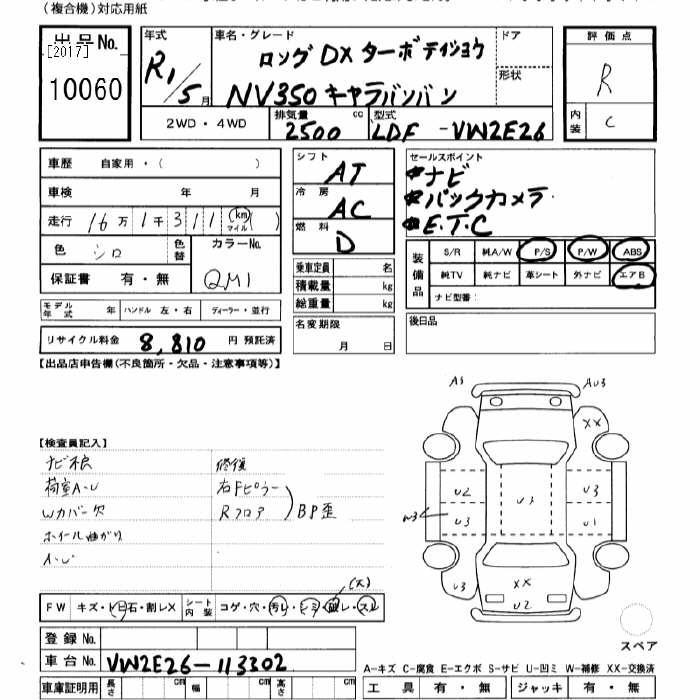 (複合機)対応用紙
出品No.
[2017]
10060
年式
R1/5月
車名・グレード
ロングDXターボテイショウ
NV350キャラバンバン
ドア
形状
評価点
R
内装
C
2WD・4WD
排気量
2500 cc
型式
LDF-VW2E26
車歴 自家用・( )
車検 年 月
走行 16万1千311 (km マイル)( )
色 シロ
色替
カラーNo.
QM1
保証書 有・無
モデル年式 年 ハンドル 左・右 ディーラー・並行
リサイクル料金 8,810 円 預託済
シフト
AT
冷房
AC
燃料
D
乗車定員 名
積載量 kg
総重量 kg
名変期限
月 日
セールスポイント
ナビ
バックカメラ
E.T.C
装備品
S/R 純A/W P/S P/W ABS
純TV 純ナビ 革シート 外ナビ エアB
ナビ型番:
後日品
【出品店申告欄(不良箇所・欠品・注意事項等)】
【検査員記入】
ナビ不良
荷室A・U
Wカバー欠
ホイール曲がり
A・U
修復
右Fピラー
Rフロア
BP歪
A3
AU3
XX
U2
U3
U3
W3
U3
U1
U3
XX
U2
(大)
FW キズ・ヒビ石・割レX
シート内装 コゲ・穴・汚レ・シミ・破レ・スレ
登録No.
車台No. VW2E26-113302
車庫証明用 長さ cm 幅 cm 高さ cm
スペア
A-キズ C-腐食 E-エクボ S-サビ U-凹ミ W-補修 XX-交換済
工具 有・無 ジャッキ 有・無